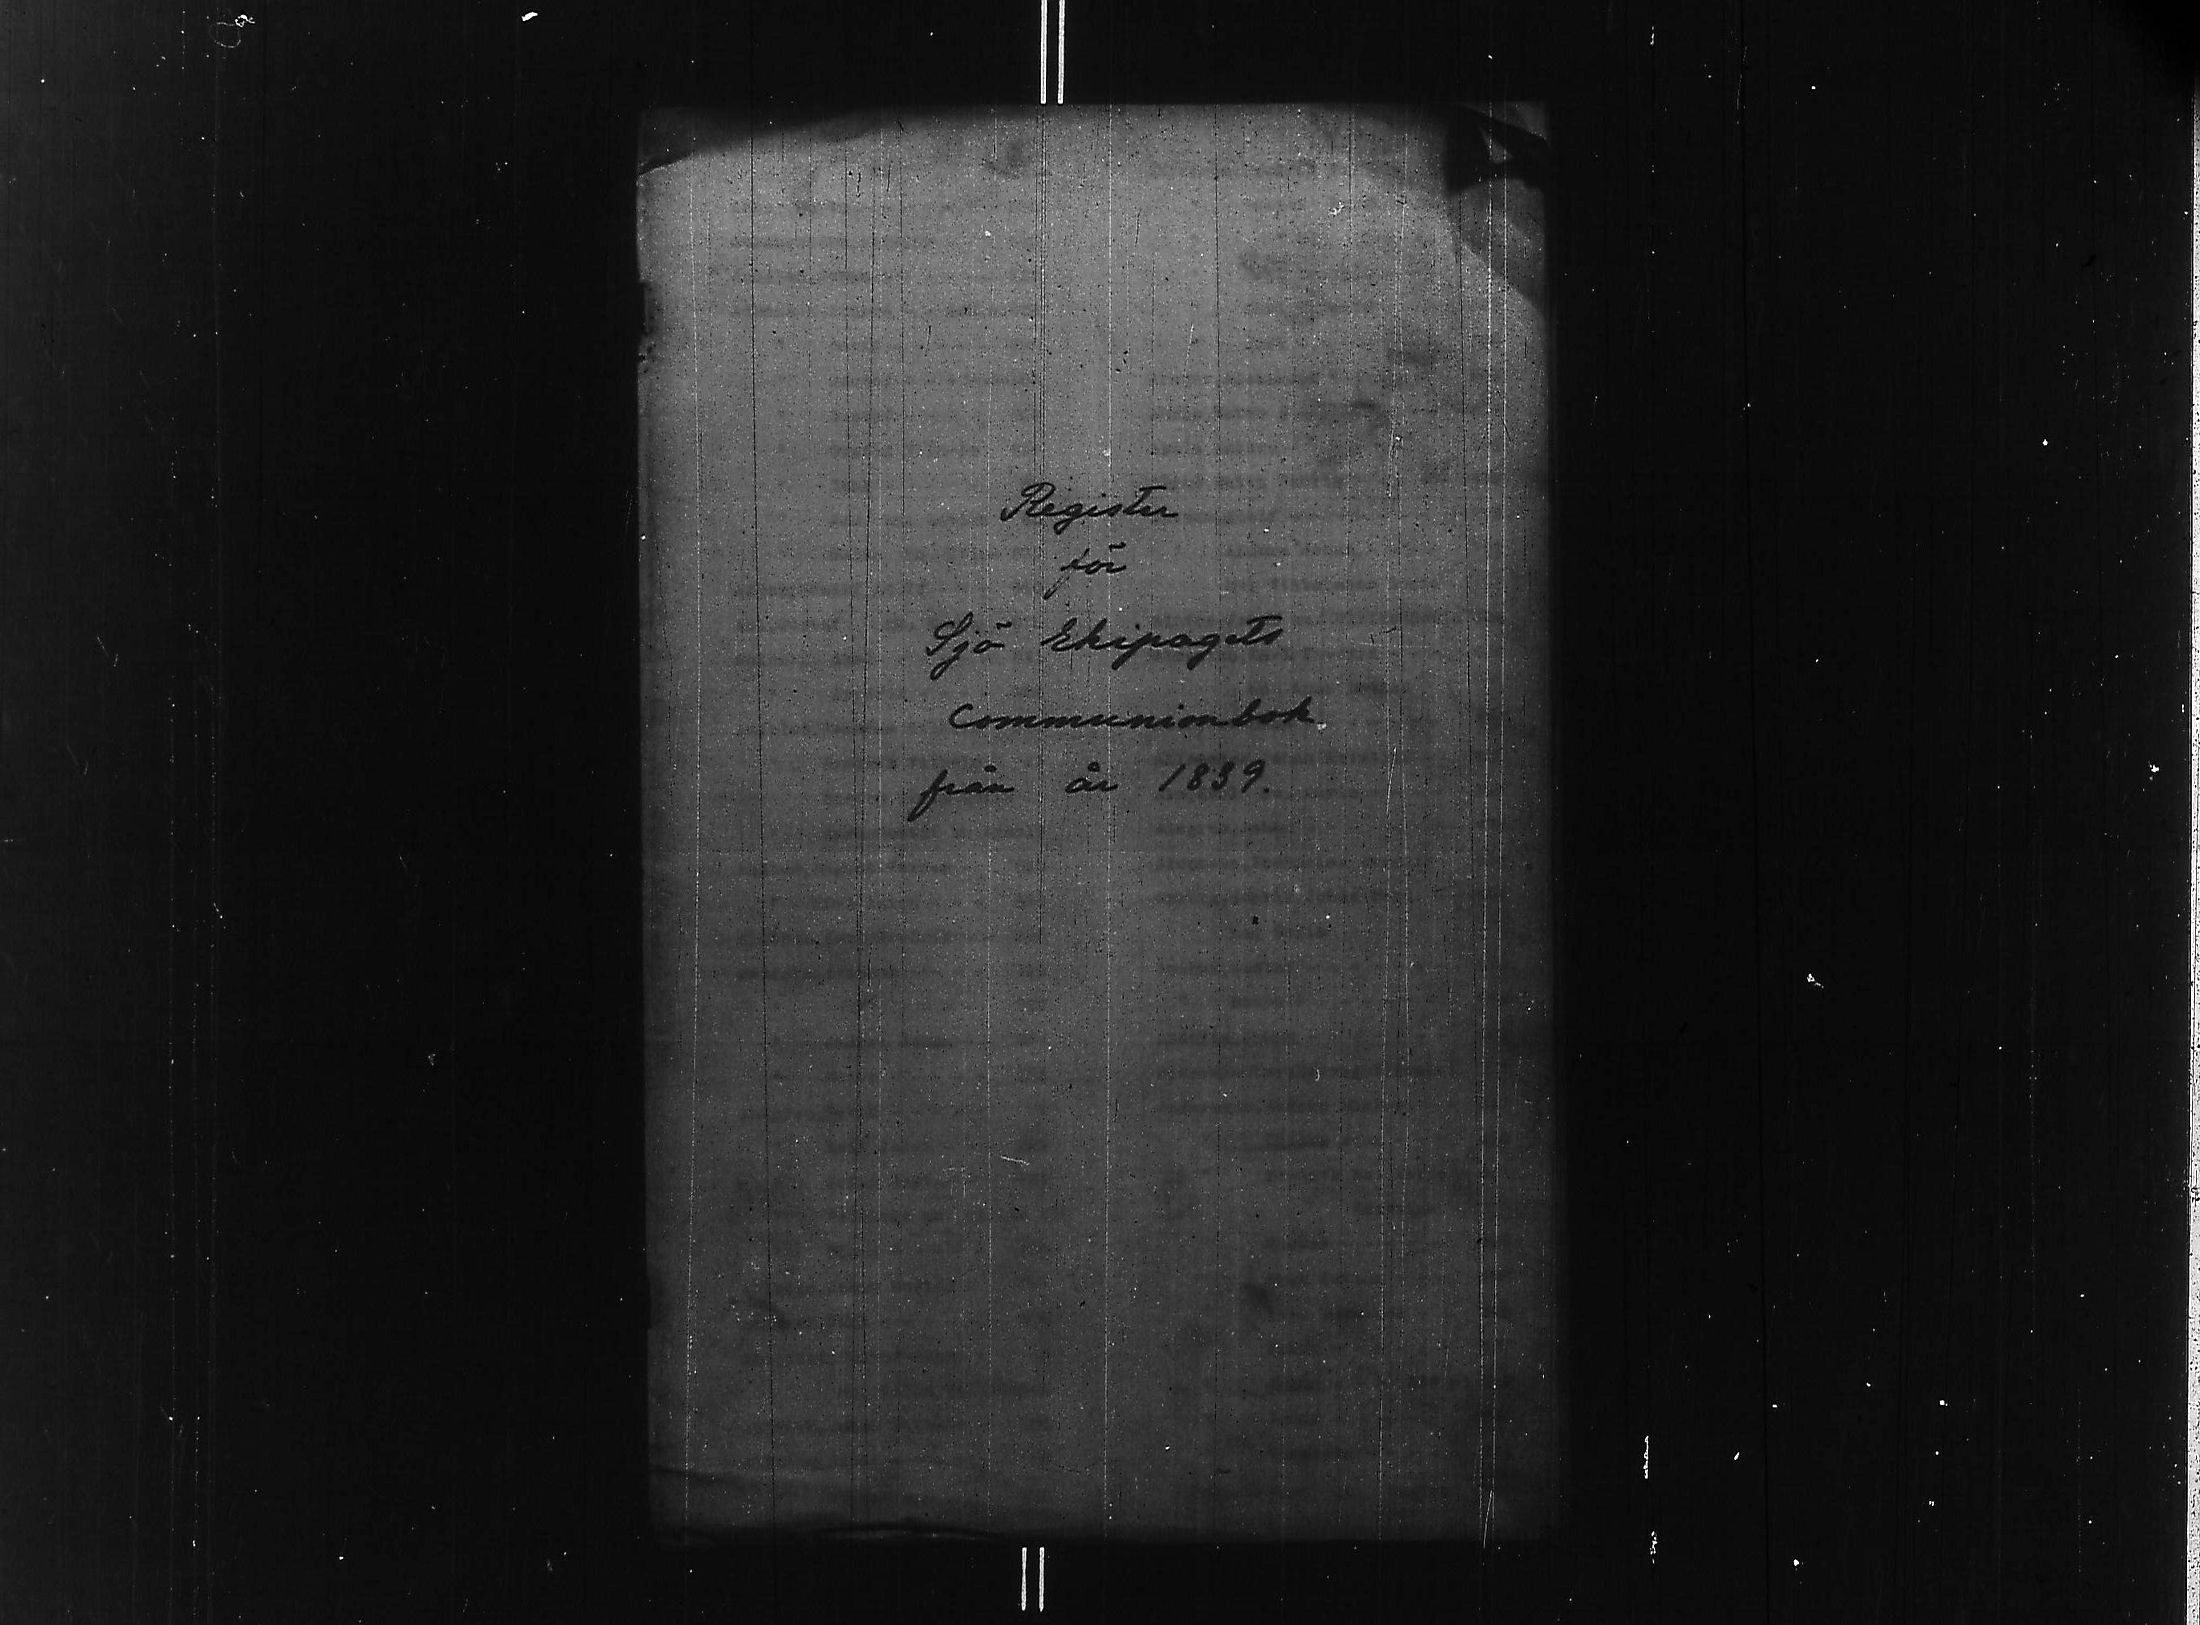 Register
för
Sjö Ekipagets
Communionbok
från år 1839.